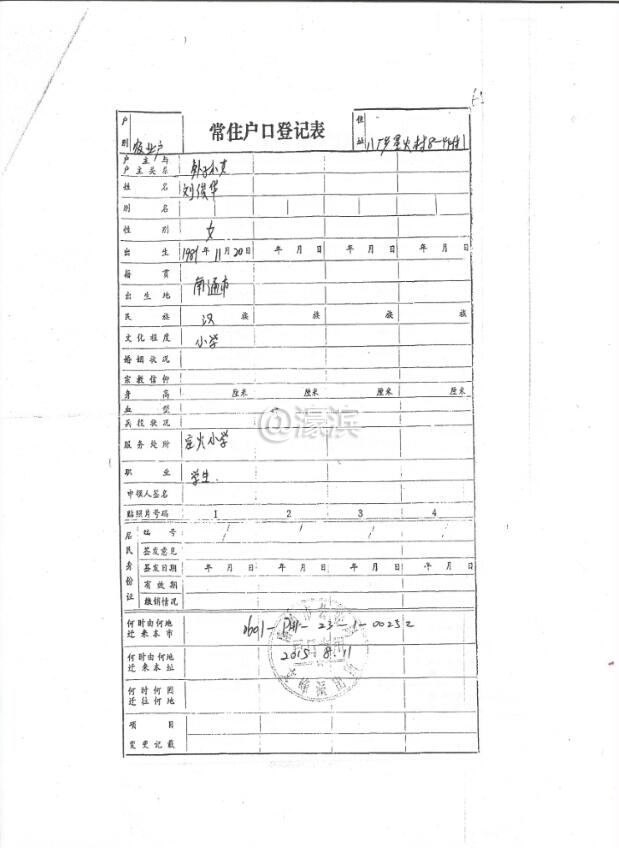 户别 农业户
常住户口登记表
住址
户主与户主关系
姓名 刘俊华
别名
性别 女
出生 1981年11月20日 年月日 年月日 年月日
籍贯
出生地 南通市
民族 汉族 族 族 族
文化程度 小学
婚姻状况
宗教信仰
身高 厘米 厘米 厘米 厘米
血型
兵役状况
@濠滨
服务处所 小学
职业 学生
申领人签名
贴照片号码 1 2 3 4
居民身份证
编号
签发意见
签发日期 年月日 年月日 年月日 年月日
有效期
缴销情况
何时由何地迁来本市
何时由何地迁来本址 2015.8.11
何时何因迁往何地
项目
变更记载